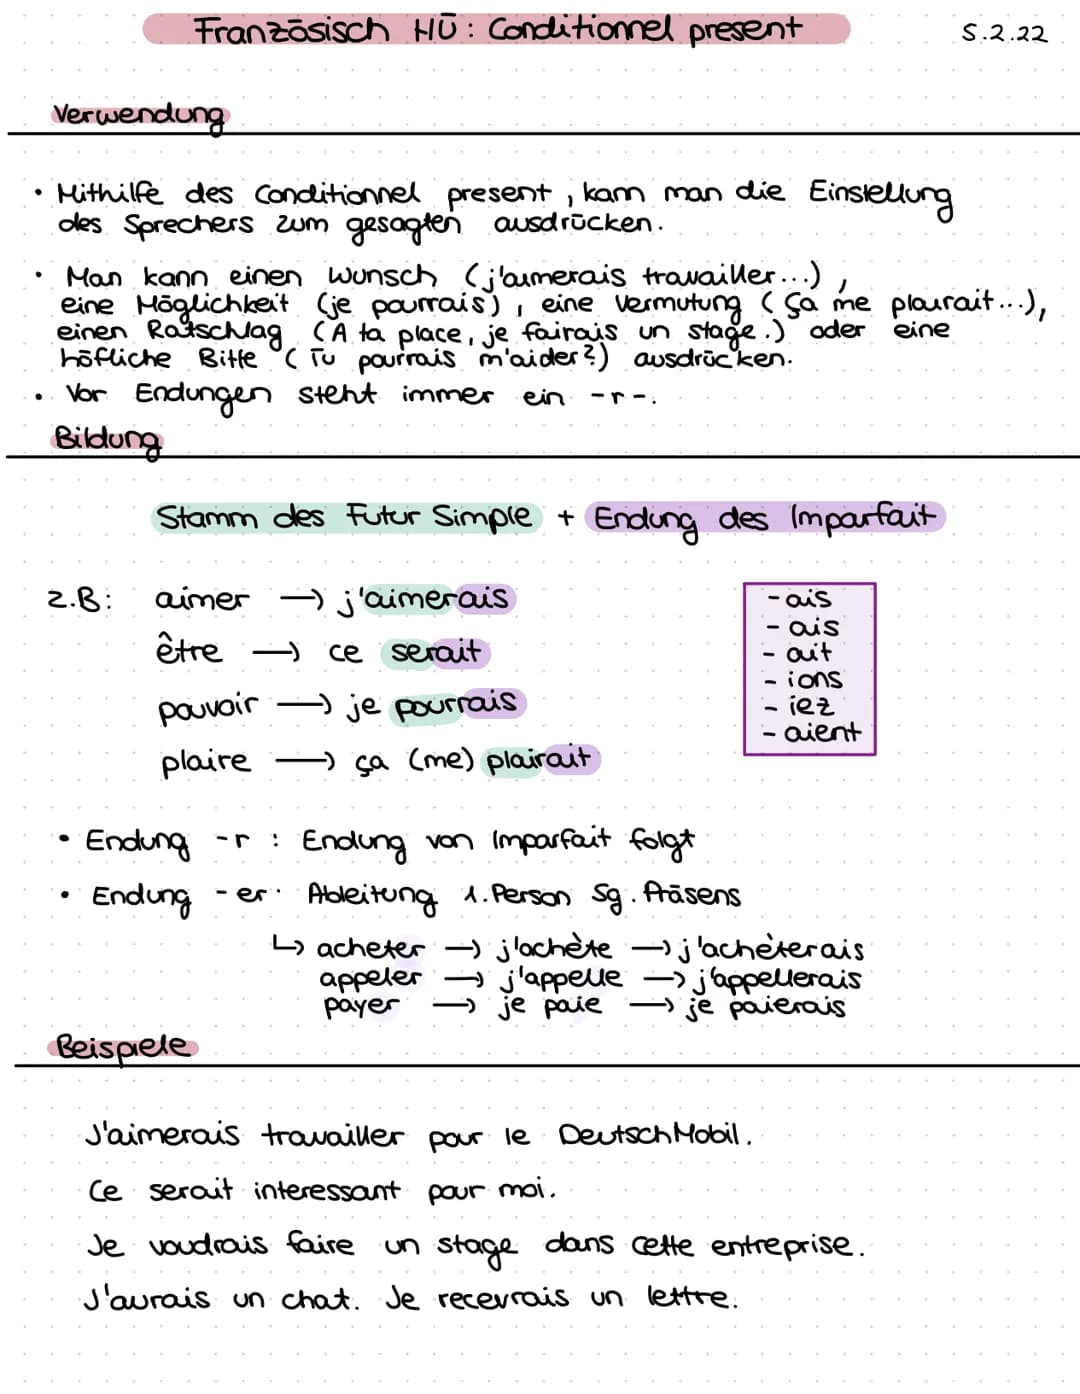 Französisch HÜ: Conditionnel present 5.2.22
Verwendung
• Mithilfe des Conditionnel present, kann man die Einstellung
des Sprechers zum gesagten ausdrücken.
• Man kann einen Wunsch (j'aimerais travailler...),
eine Möglichkeit (je pourrais), eine Vermutung (Ça me plairait...),
einen Ratschlag (A ta place, je fairais un stage.) oder eine
höfliche Bitte (Tu pourrais m'aider?) ausdrücken.
• Vor Endungen steht immer ein -r-.
Bildung
Stamm des Futur Simple + Endung des Imparfait
z.B: aimer → j'aimerais
être → ce serait
pouvoir → je pourrais
plaire → ça (me) plairait
- ais
- ais
- ait
- ions
- iez
- aient
• Endung -r : Endung von Imparfait folgt
• Endung -er: Ableitung 1. Person Sg. Präsens
↳ acheter → j'achète → j'achèterais
appeler → j'appelle → j'appellerais
payer → je paie → je paierais
Beispiele
J'aimerais travailler pour le DeutschMobil.
Ce serait interessant pour moi.
Je voudrais faire un stage dans cette entreprise.
J'aurais un chat. Je recevrais un lettre.